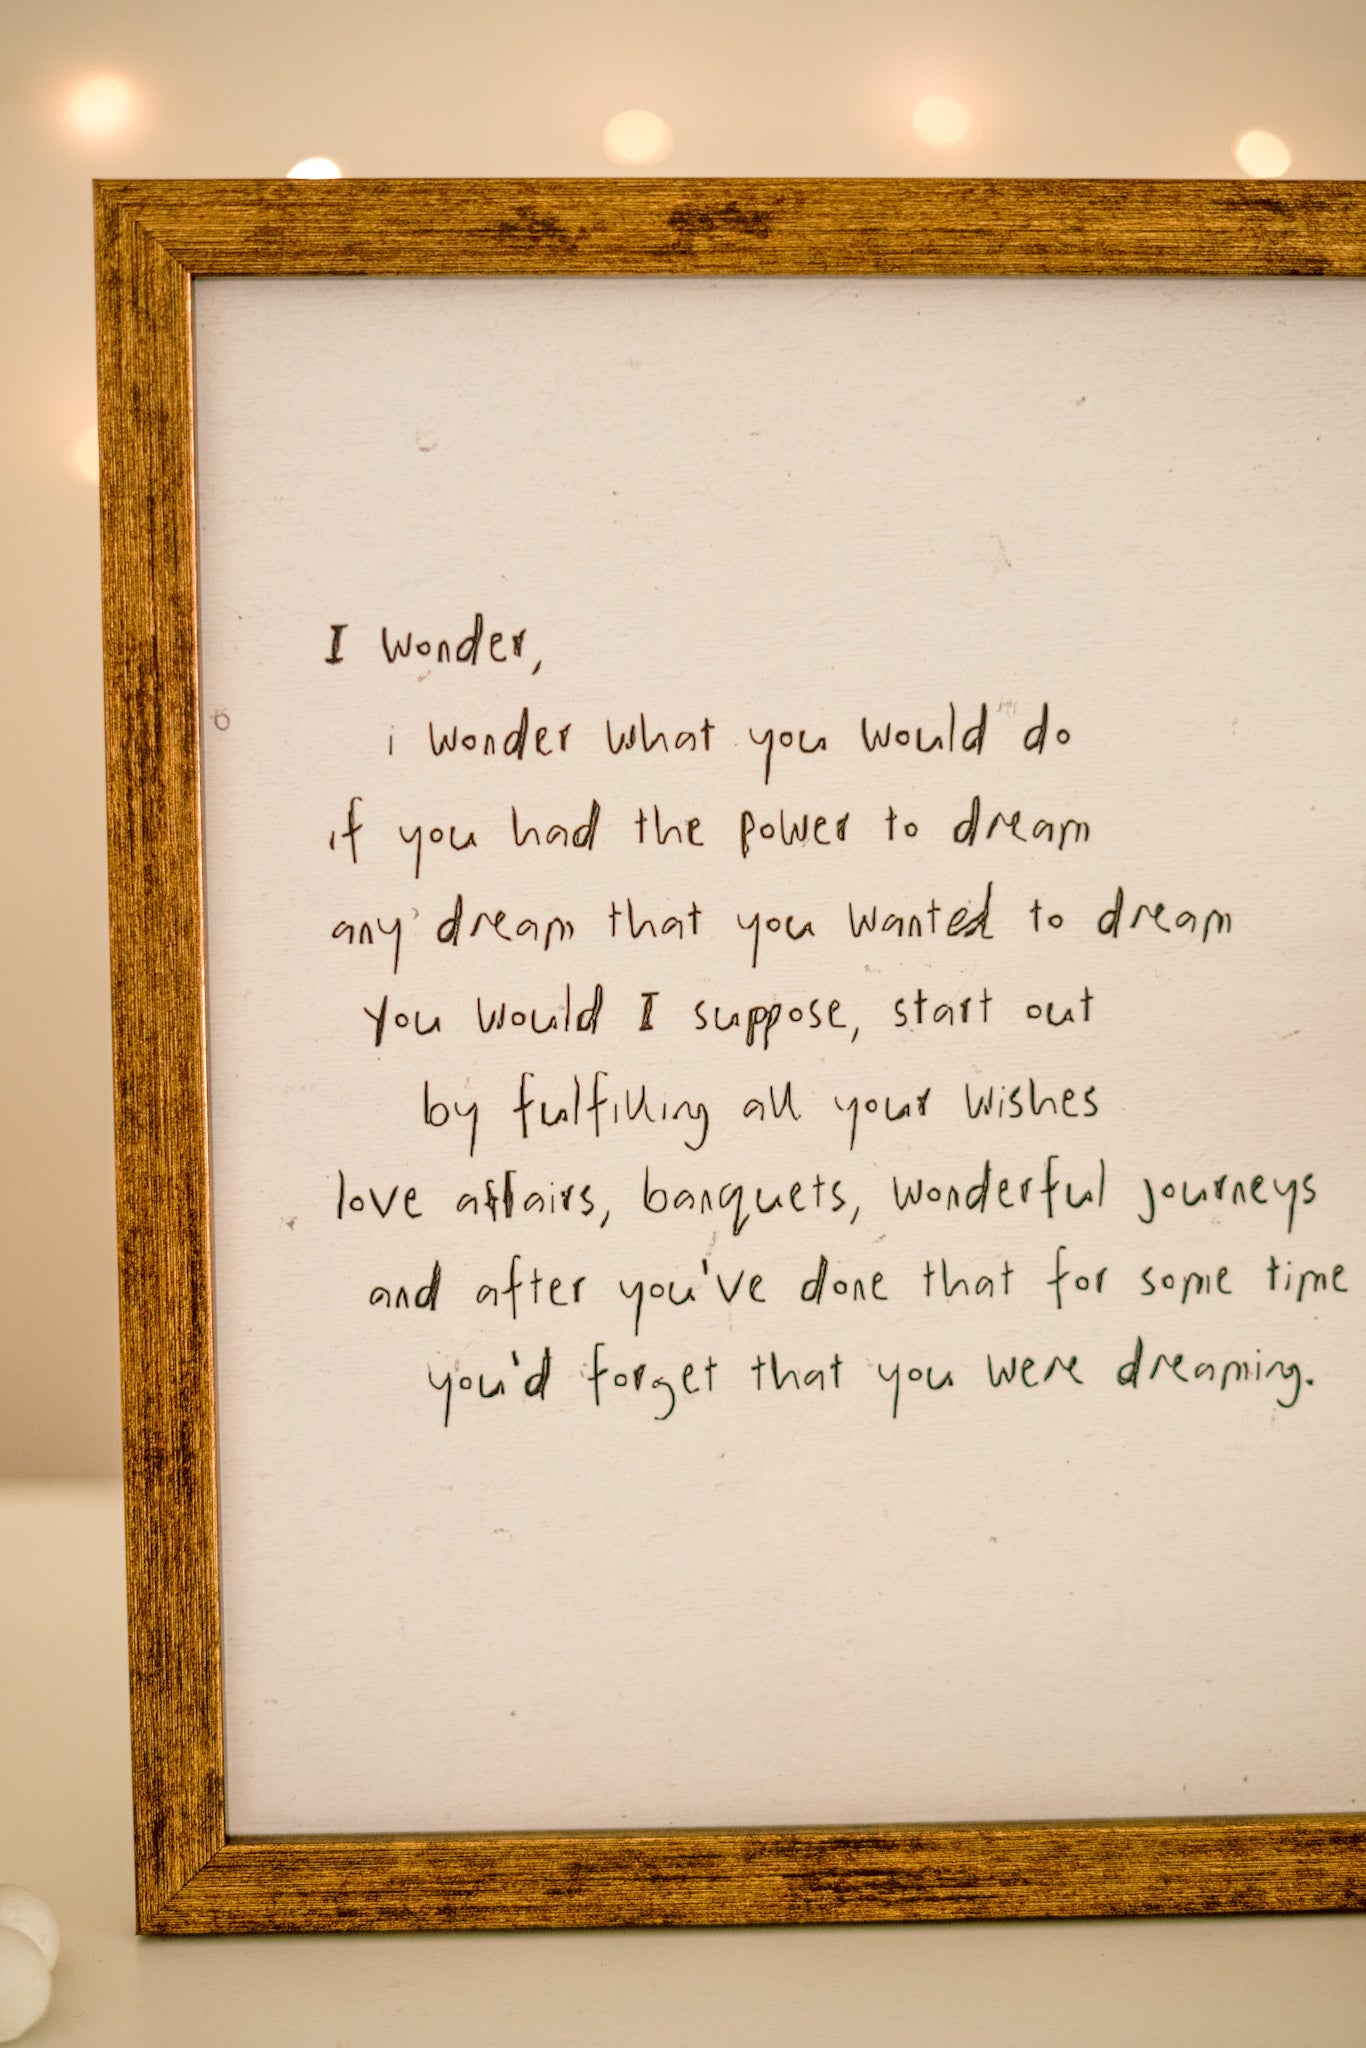 I wonder,
i wonder what you would do
if you had the power to dream
any dream that you wanted to dream
you would I suppose, start out
by fulfilling all your wishes
love affairs, banquets, wonderful journeys
and after you've done that for some time
you'd forget that you were dreaming.